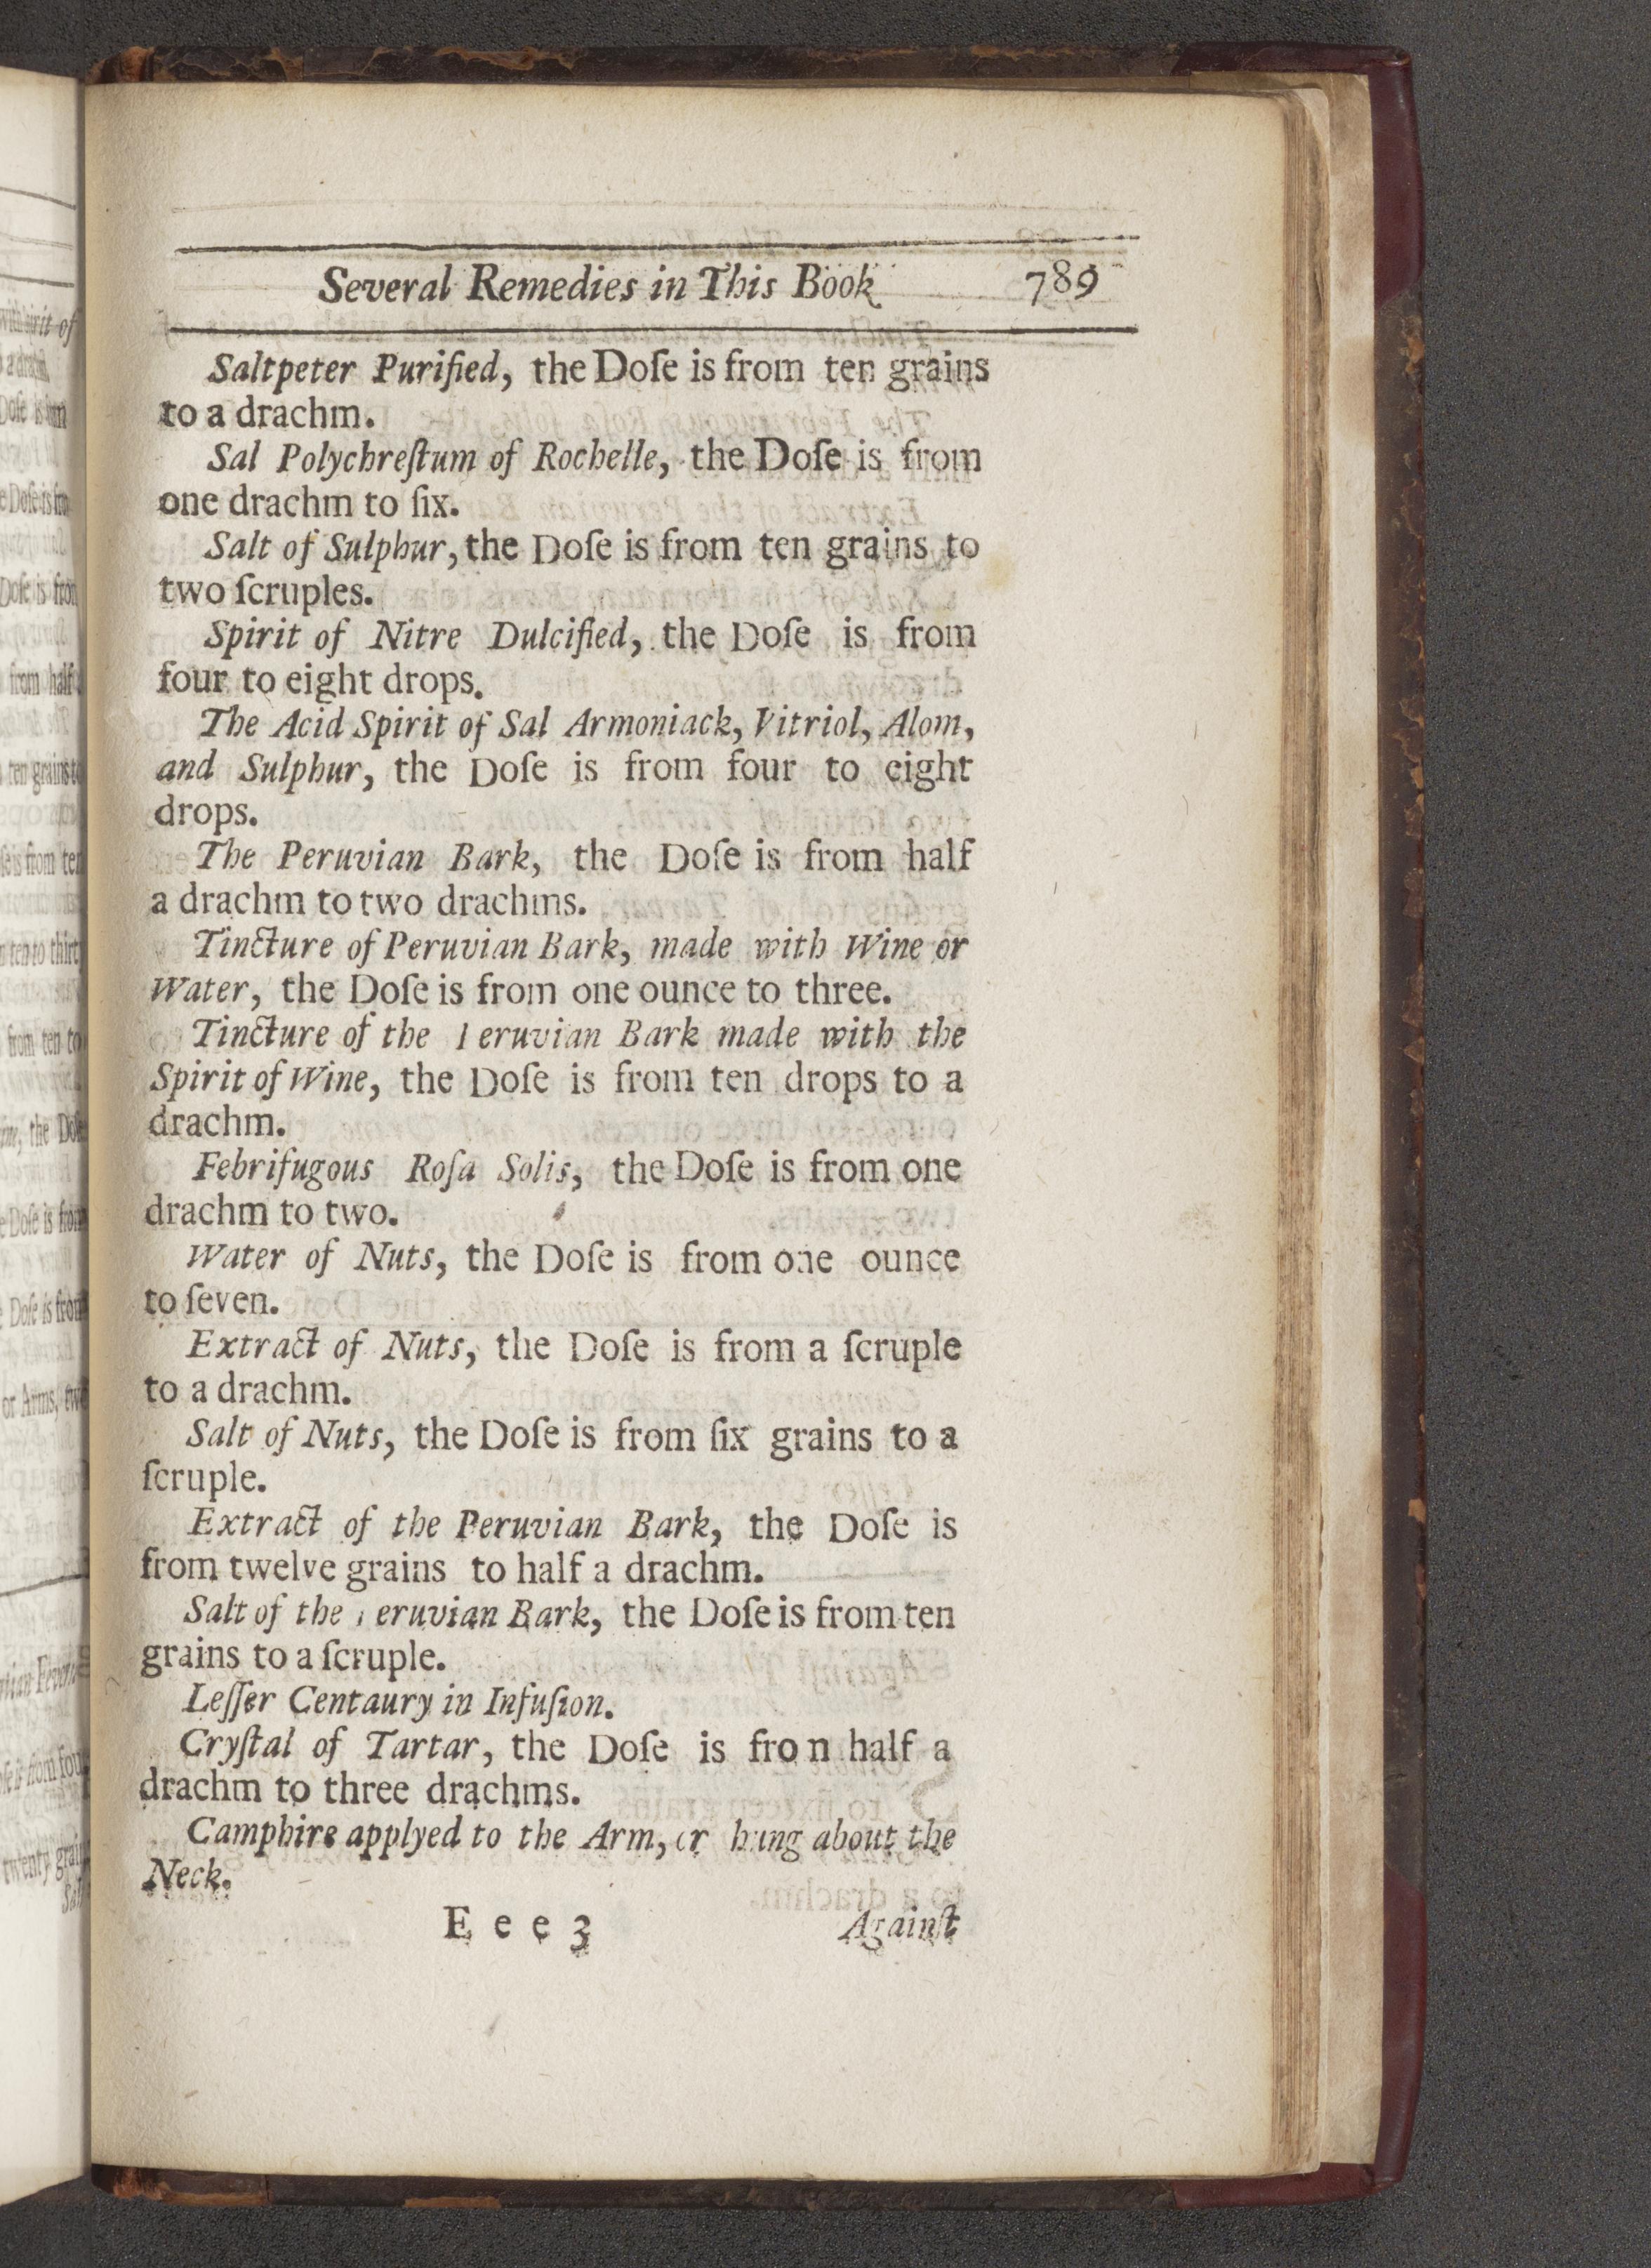 Several Remedies in This Book 789
Saltpeter Purified, the Doſe is from ten grains
to a drachm.
Sal Polychreſtum of Rochelle, the Doſe is from
one drachm to ſix.
Salt of Sulphur, the Doſe is from ten grains to
two ſcruples.
Spirit of Nitre Dulcified, the Doſe is from
four to eight drops.
The Acid Spirit of Sal Armoniack, Vitriol, Alom,
and Sulphur, the Doſe is from four to eight
drops.
The Peruvian Bark, the Doſe is from half
a drachm to two drachms.
Tincture of Peruvian Bark, made with Wine or
Water, the Doſe is from one ounce to three.
Tincture of the Peruvian Bark made with the
Spirit of Wine, the Doſe is from ten drops to a
drachm.
Febrifugous Roſa Solis, the Doſe is from one
drachm to two.
Water of Nuts, the Doſe is from one ounce
to ſeven.
Extract of Nuts, the Doſe is from a ſcruple
to a drachm.
Salt of Nuts, the Doſe is from ſix grains to a
ſcruple.
Extract of the Peruvian Bark, the Doſe is
from twelve grains to half a drachm.
Salt of the Peruvian Bark, the Doſe is from ten
grains to a ſcruple.
Leſſer Centaury in Infuſion.
Cryſtal of Tartar, the Doſe is from half a
drachm to three drachms.
Camphire applyed to the Arm, or hung about the
Neck.
E e e 3 Againſt